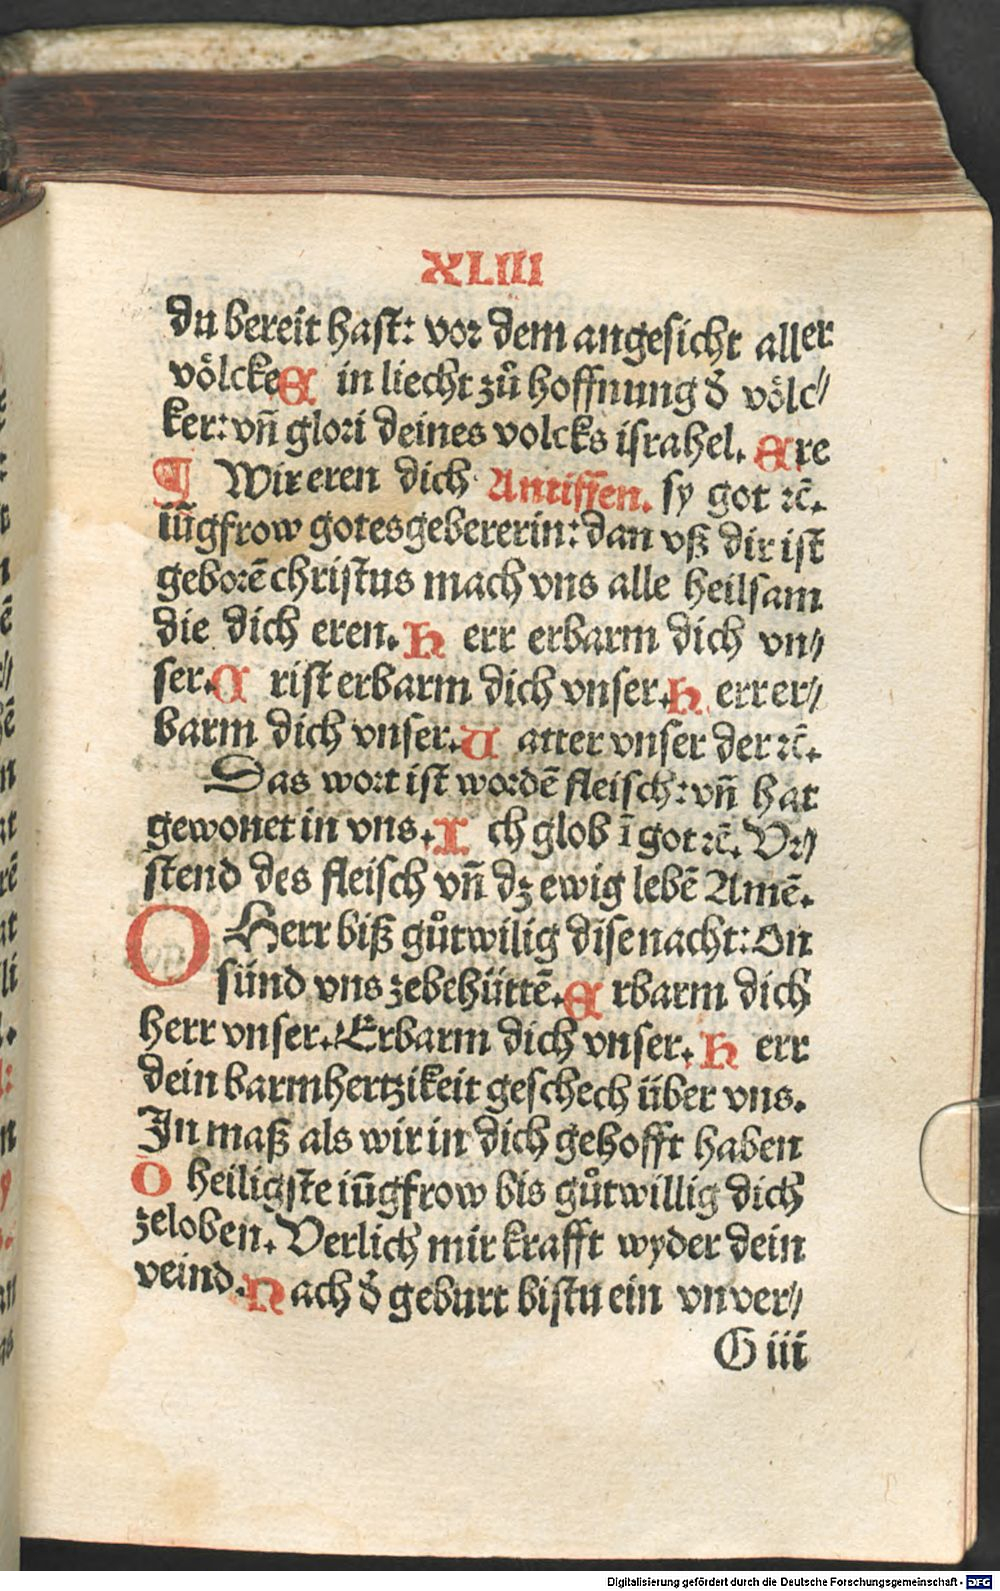 XLIII
du bereit hast: vor dem angesicht aller
völcke E in liecht zů hoffnung d̄ völc⸗
ker: vn̄ glori deines volcks israhel. Ere
¶ Wir eren dich Antiffen. sy got ꝛc̄.
iūgfrow gotesgebererin: dan vß dir ist
geborē christus mach vns alle heilsam
die dich eren. H err erbarm dich vn⸗
ser. C rist erbarm dich vnser. H err er⸗
barm dich vnser. V atter vnser der ꝛc̄.
Das wort ist wordē fleisch: vn̄ hat
gewonet in vns. I ch glob ī got ꝛc̄. Vr⸗
stend des fleisch vn̄ dz ewig lebē Amē.
O Herr biß gůtwilig dise nacht: On
sünd vns zebehüttē. E rbarm dich
herr vnser. Erbarm dich vnser. H err
dein barmhertzikeit geschech über vns.
In maß als wir in dich gehofft haben
O heiligste iūgfrow bis gůtwillig dich
zeloben. Verlich mir krafft wyder dein
veind. N ach d̄ geburt bistu ein vnver⸗
G iii
Digitalisierung gefördert durch die Deutsche Forschungsgemeinschaft - DFG